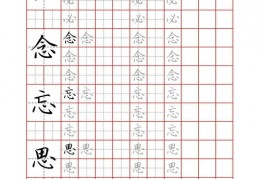 必 必
必 必
念 念 念 念
念 念
念 念
忘 忘 忘 忘
忘 忘
忘 忘
思 思 思 思
思 思